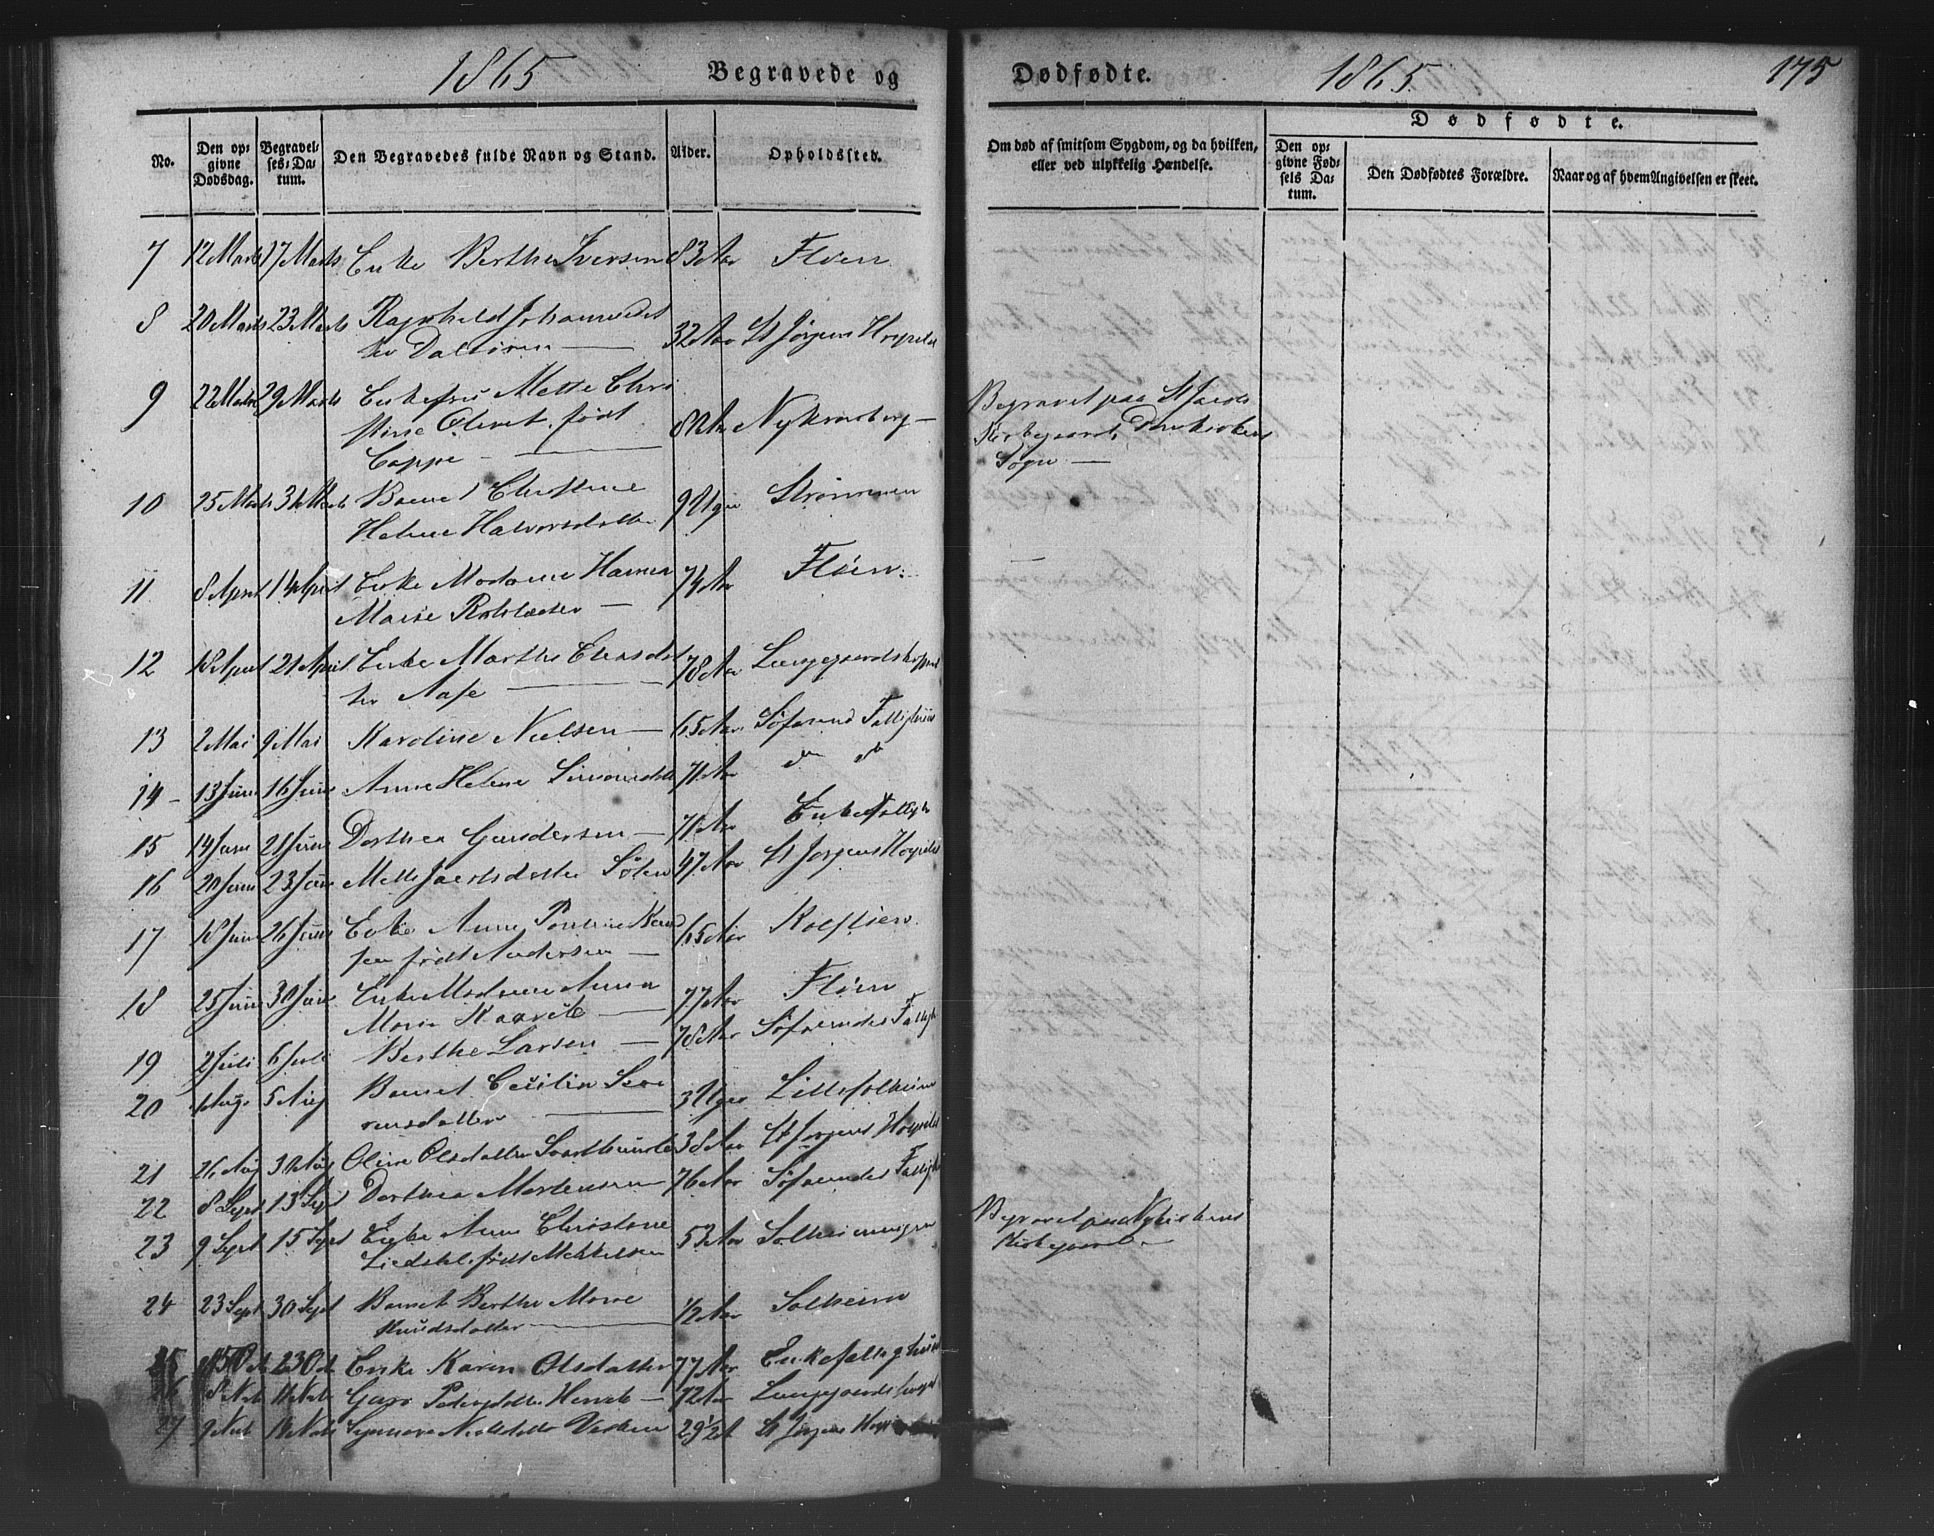 1865 Begravede og Dødfødte. 1865. 175
No. Den opgivne Dødsdag. Begravelses-Datum. Den Begravedes fulde Navn og Stand. Alder. Opholdssted. Om død af smitsom Sygdom, og da hvilken, eller ved ulykkelig Hændelse. Dødfødte.
Den opgivne Fødsels Datum. Den Dødfødtes Forældre. Naar og af hvem Angivelsen er skeet.
7 12 Marts 17 Marts Enke Berthe Iversen 83 Aar Fløen
8 20 Marts 23 Marts Ragnhild Johannesdat
ter Dalsøren — 32 Aar St Jørgens Hospital
9 22 Marts 29 Marts Enkefru Mette Chri
stine født
Coppe — 82 Aar Nykronborg —
Begravet paa St Jacobs
Kirkegaard, Domkirkens
Sogn —
10 25 Marts 31 Marts Barnet Christine
Helene Halvorsdatter 9 Uger Strømmen
11 8 April 14 April Enke Madame Hanna
Marie — 74 Aar Fløen.
12 18 April 21 April Enke Marthe
ter Aase — 78 Aar Lungegaardshospital
13 2 Mai 9 Mai Karoline Nielsen — 65 Aar Søfarend Fattighuus
14 – 13 Juni 16 Juni Anne Helene Simonsdatter 71 Aar do do
15 14 Juni 21 Juni Dorthea Gundersen — 71 Aar Enkefattigh
16 20 Juni 23 Juni Mette 47 Aar St Jørgens Hospital
17 18 Juni 26 Juni Enke Anne Pauline Knud
sen født Andersen — 65 Aar Kalfaren
18 25 Juni 30 Juni Enke Madame Anna
Maria — 77 Aar Fløen
19 2 Juli 6 Juli Berthe Larsen — 78 Aar Søfarendes Fattigh
20 1 Aug. 5 Aug Barnet Cecilia
datter — 3 Uger Lille Solheim
21 26 Aug 31 Aug Oline Olsdatter 38 Aar St Jørgens Hospital
22 8 Sept 13 Sept Dorthea Mortensen 76 Aar Søfarendes Fattigh
23 9 Sept 15 Sept Enke Anne Christine
født Mikkelsen 53 Aar Solheimsvigen
Begravet paa Nykirkens
Kirkegaard —
24 23 Sept 30 Sept Barnet Berthe Marie
Knudsdatter — 1/2 Aar Solheim
25 15 Oct 23 Oct Enke Karen Olsdatter 77 Aar Enkefattighuus
26 8 Nov 11 Nov Guro Pedersdatter — 72 Aar Lungegaardshospit
27 9 Nov 14 Nov Synneve 29 1/2 St Jørgens Hospital